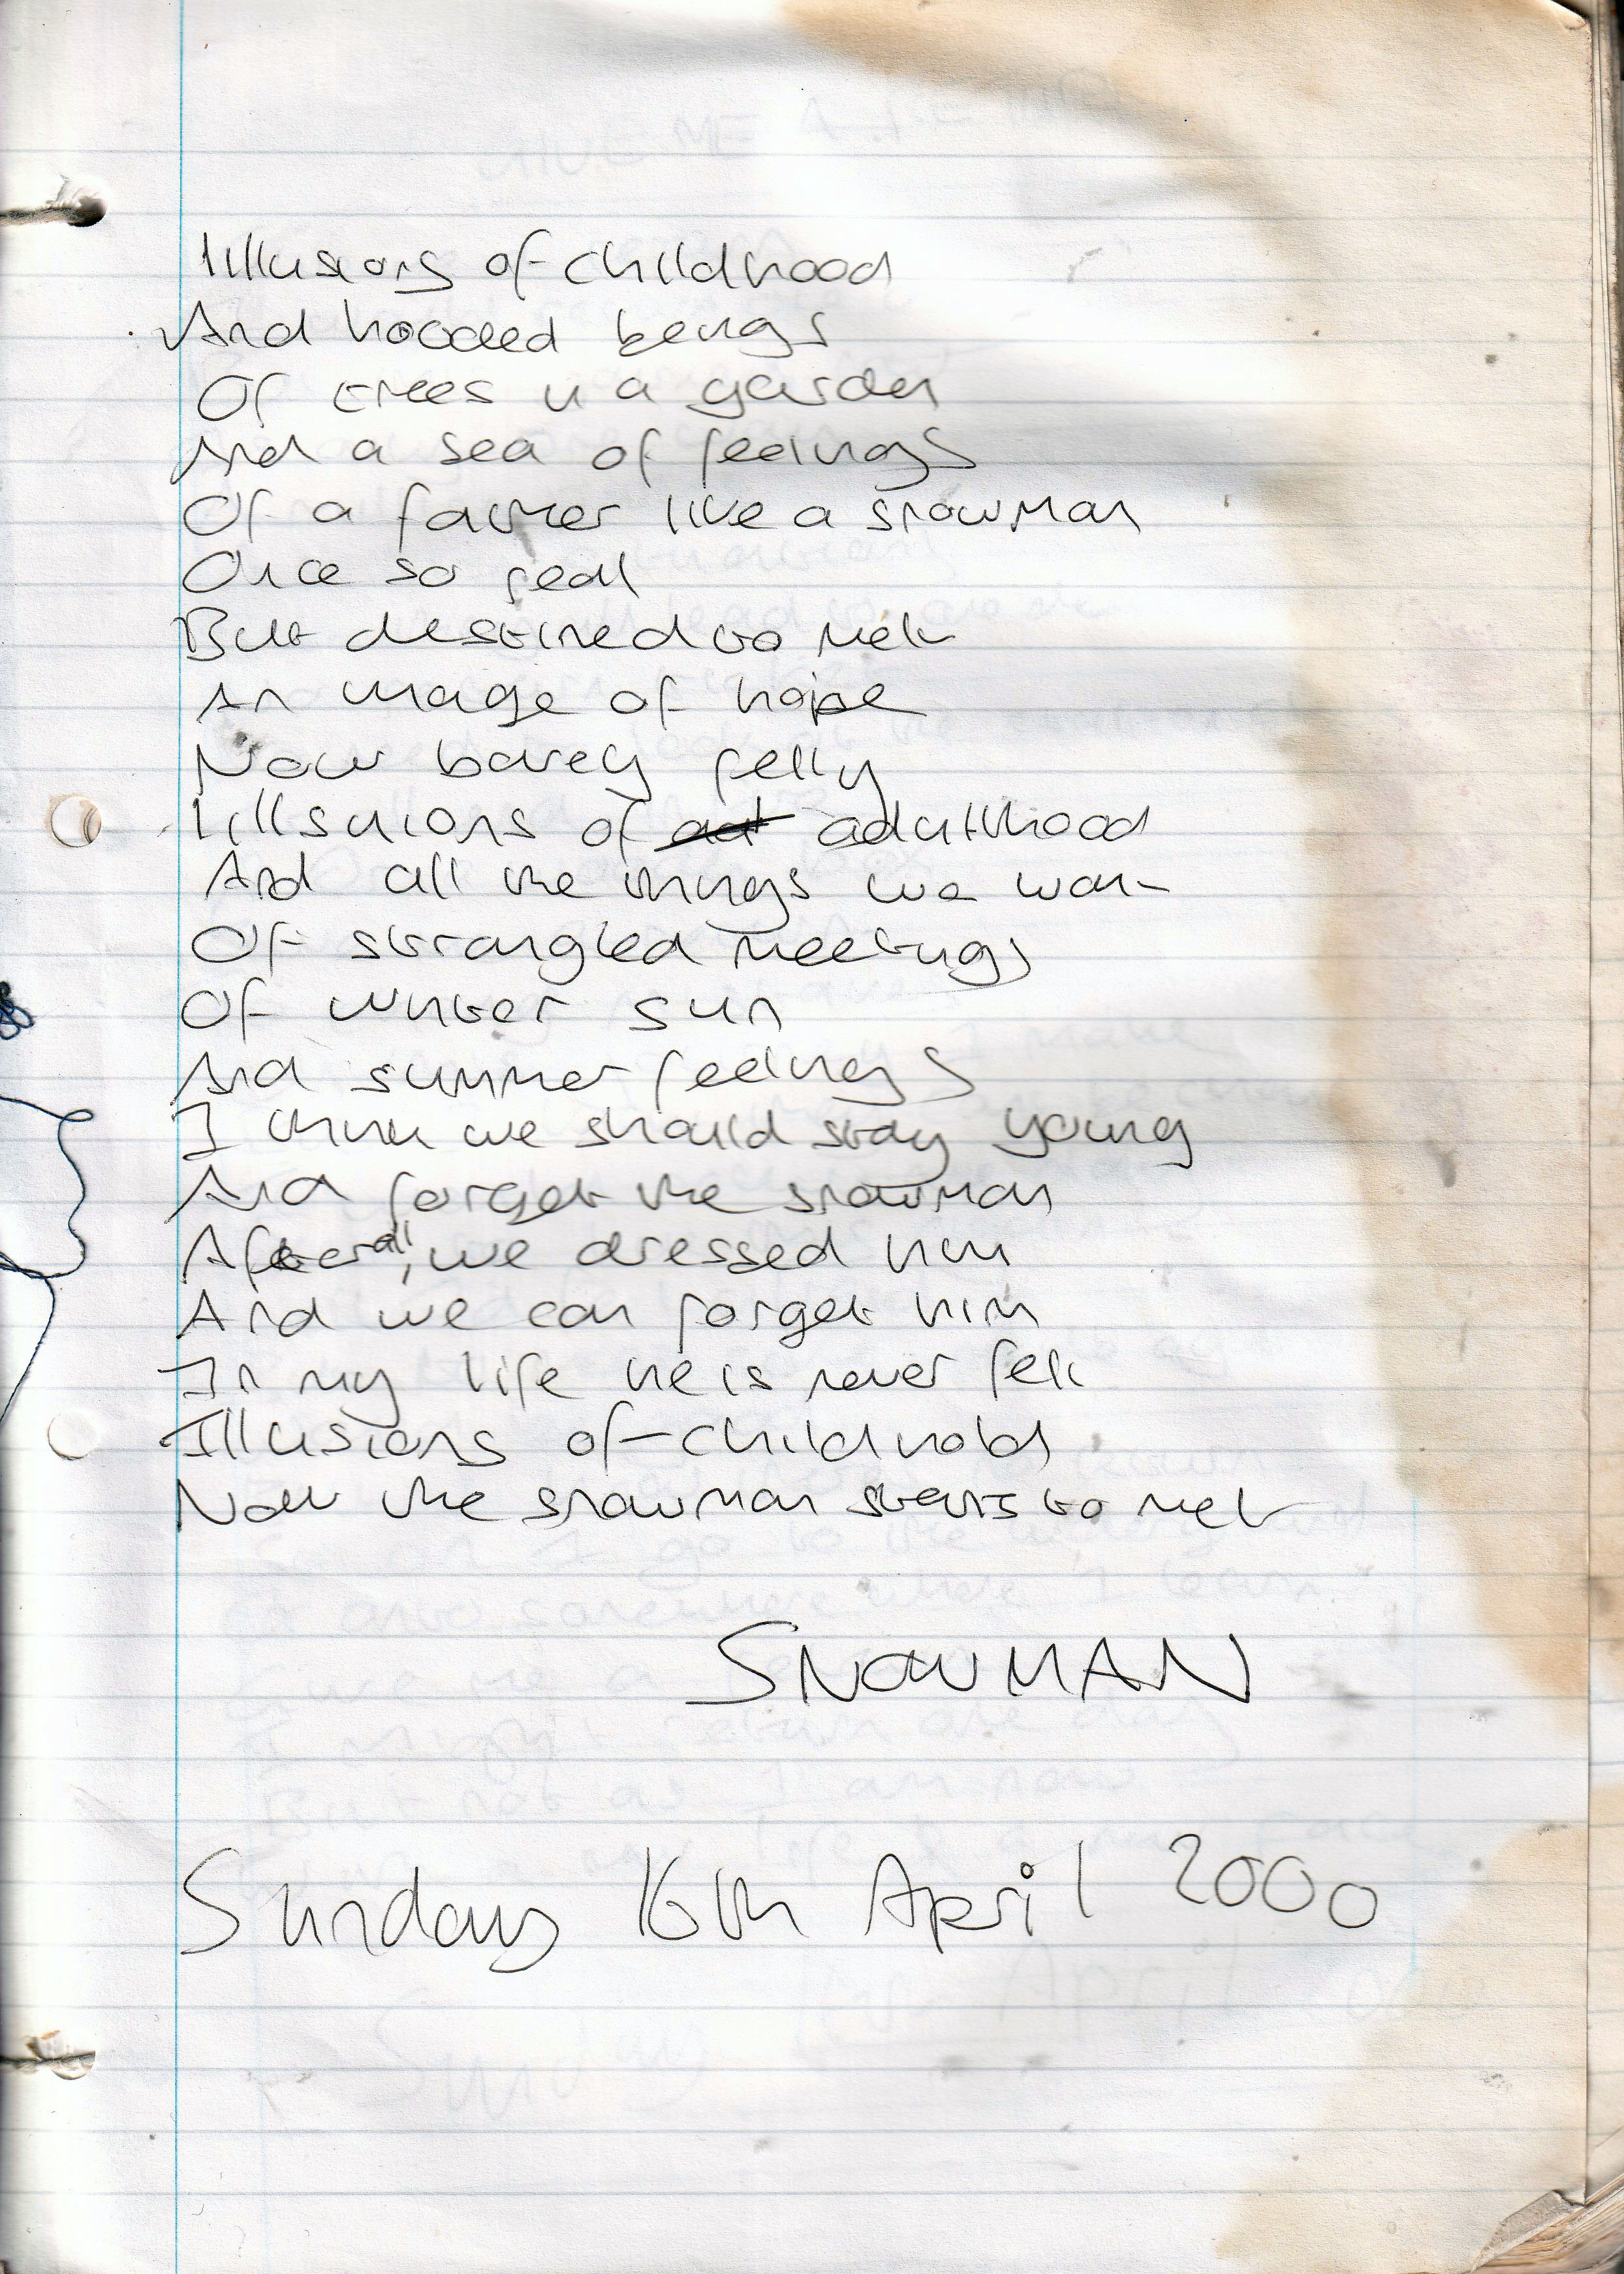 Illusions of childhood
And hooded beings
Of trees in a garden
And a sea of feelings
Of a father like a snowman
Once so real
But destined to melt
An image of hope
Now barely felt
Illsuions of adulthood
And all the things we want
Of strangled meetings
Of winter sun
And summer feelings
I think we should stay young
And forget the snowman
After all, we dressed him
And we can forget him
In my life he is never felt
Illusions of childhood
Now the snowman starts to melt
SNOWMAN
Sunday 16th April 2000